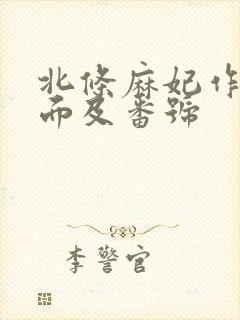 北條麻妃作
而及番號
李警官